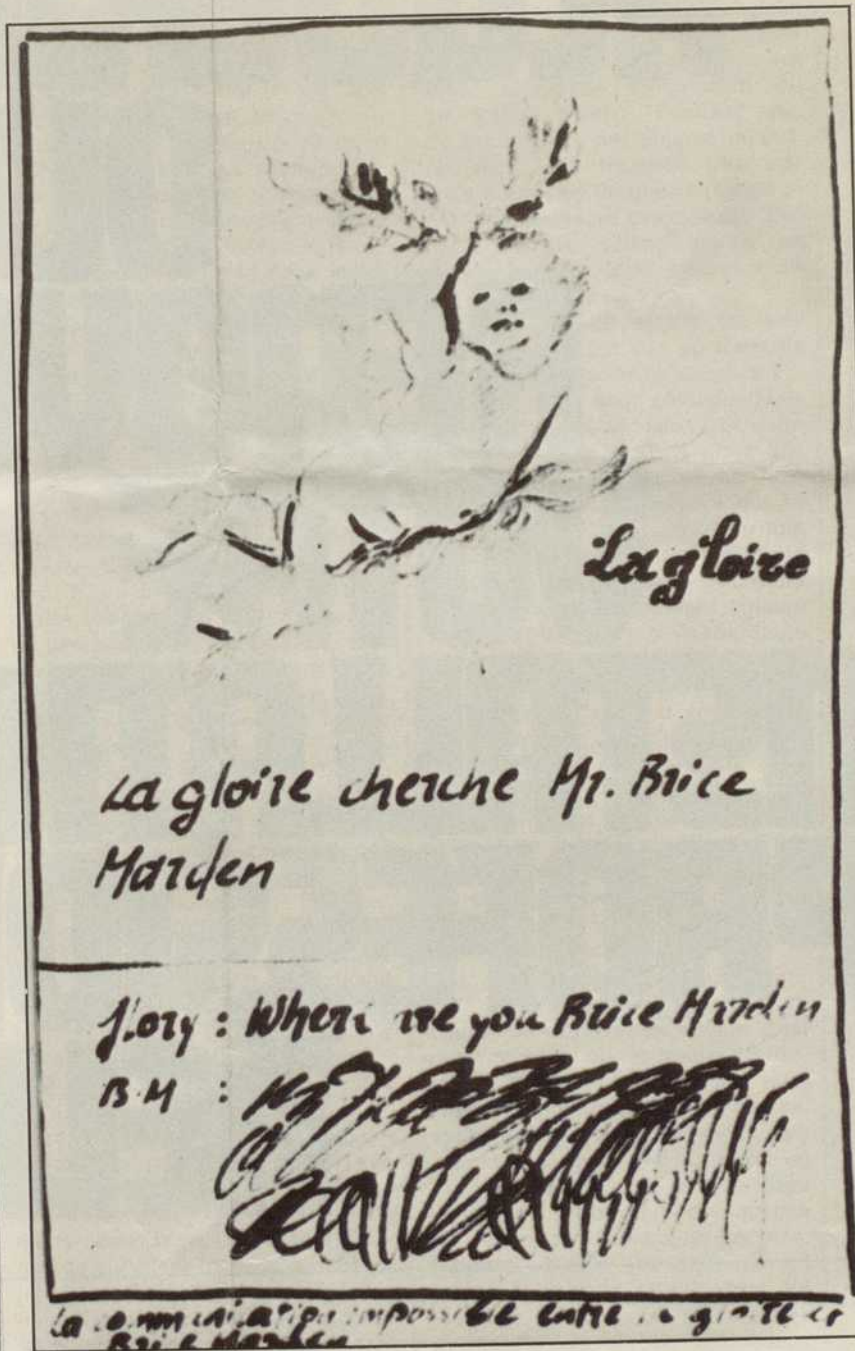 La gloire
La gloire cherche Mr. Brice
Marden
glory : Where are you Brice Marden
B.M :
La communication impossible entre la gloire et
Brice Marden